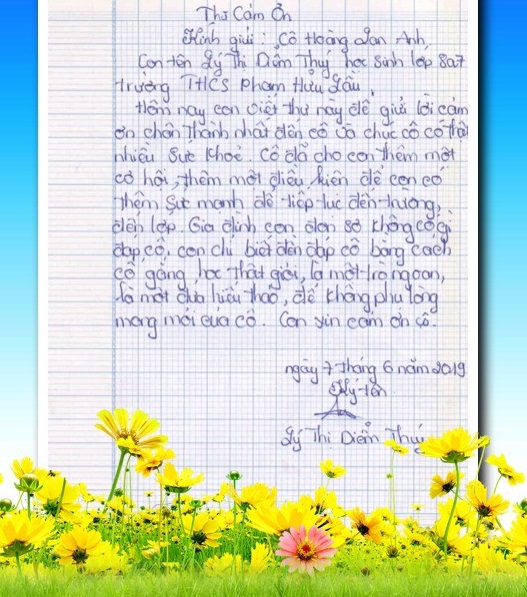 Thư Cảm Ơn
Kính gửi : Cô Hoàng Lan Anh,
Con tên Lý Thị Diễm Thuý học sinh lớp 8a7
trường THCS Phạm Hữu Lầu,
Hôm nay con viết thư này để gửi lời cảm
ơn chân thành nhất đến cô và chúc cô có thật
nhiều sức khoẻ. Cô đã cho con thêm một
cơ hội, thêm một điều kiện để con có
thêm sức mạnh để tiếp tục đến trường,
đến lớp. Gia đình con đơn sơ không có gì
đáp cô, con chỉ biết đền đáp cô bằng cách
cố gắng học thật giỏi, là một trò ngoan,
là một đứa hiếu thảo, để không phụ lòng
mong mỏi của cô. Con xin cảm ơn cô.
ngày 7 tháng 6 năm 2019
Ký tên
Lý Thị Diễm Thuý